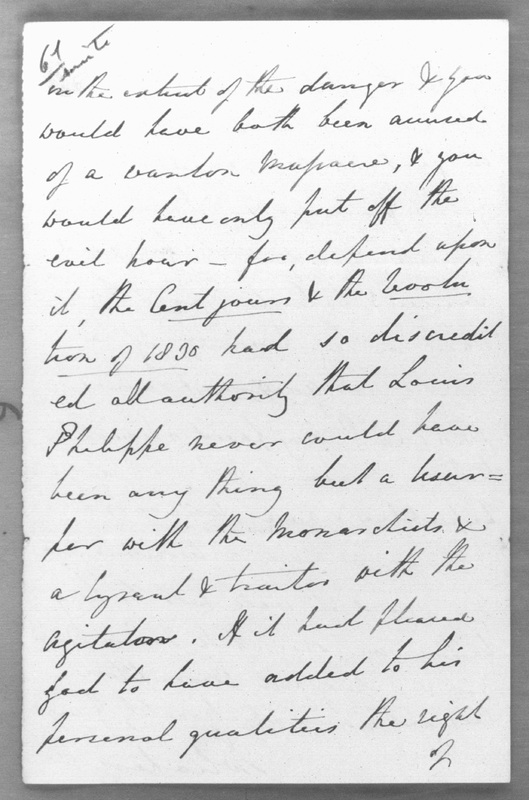 67
suite
in the extent of the danger & you
would have both been accused
of a wanton Massacre, & you
would have only put off the
evil hour – for, depend upon
it, the Cent jours & the Revolu
tion of 1830 had so discredit
ed all authority that Louis
Philippe never could have
been any thing but a Usur=
per with the Monarchists &
a tyrant & traitor with the
agitators. If it had pleased
God to have added to his
personal qualities the right
of